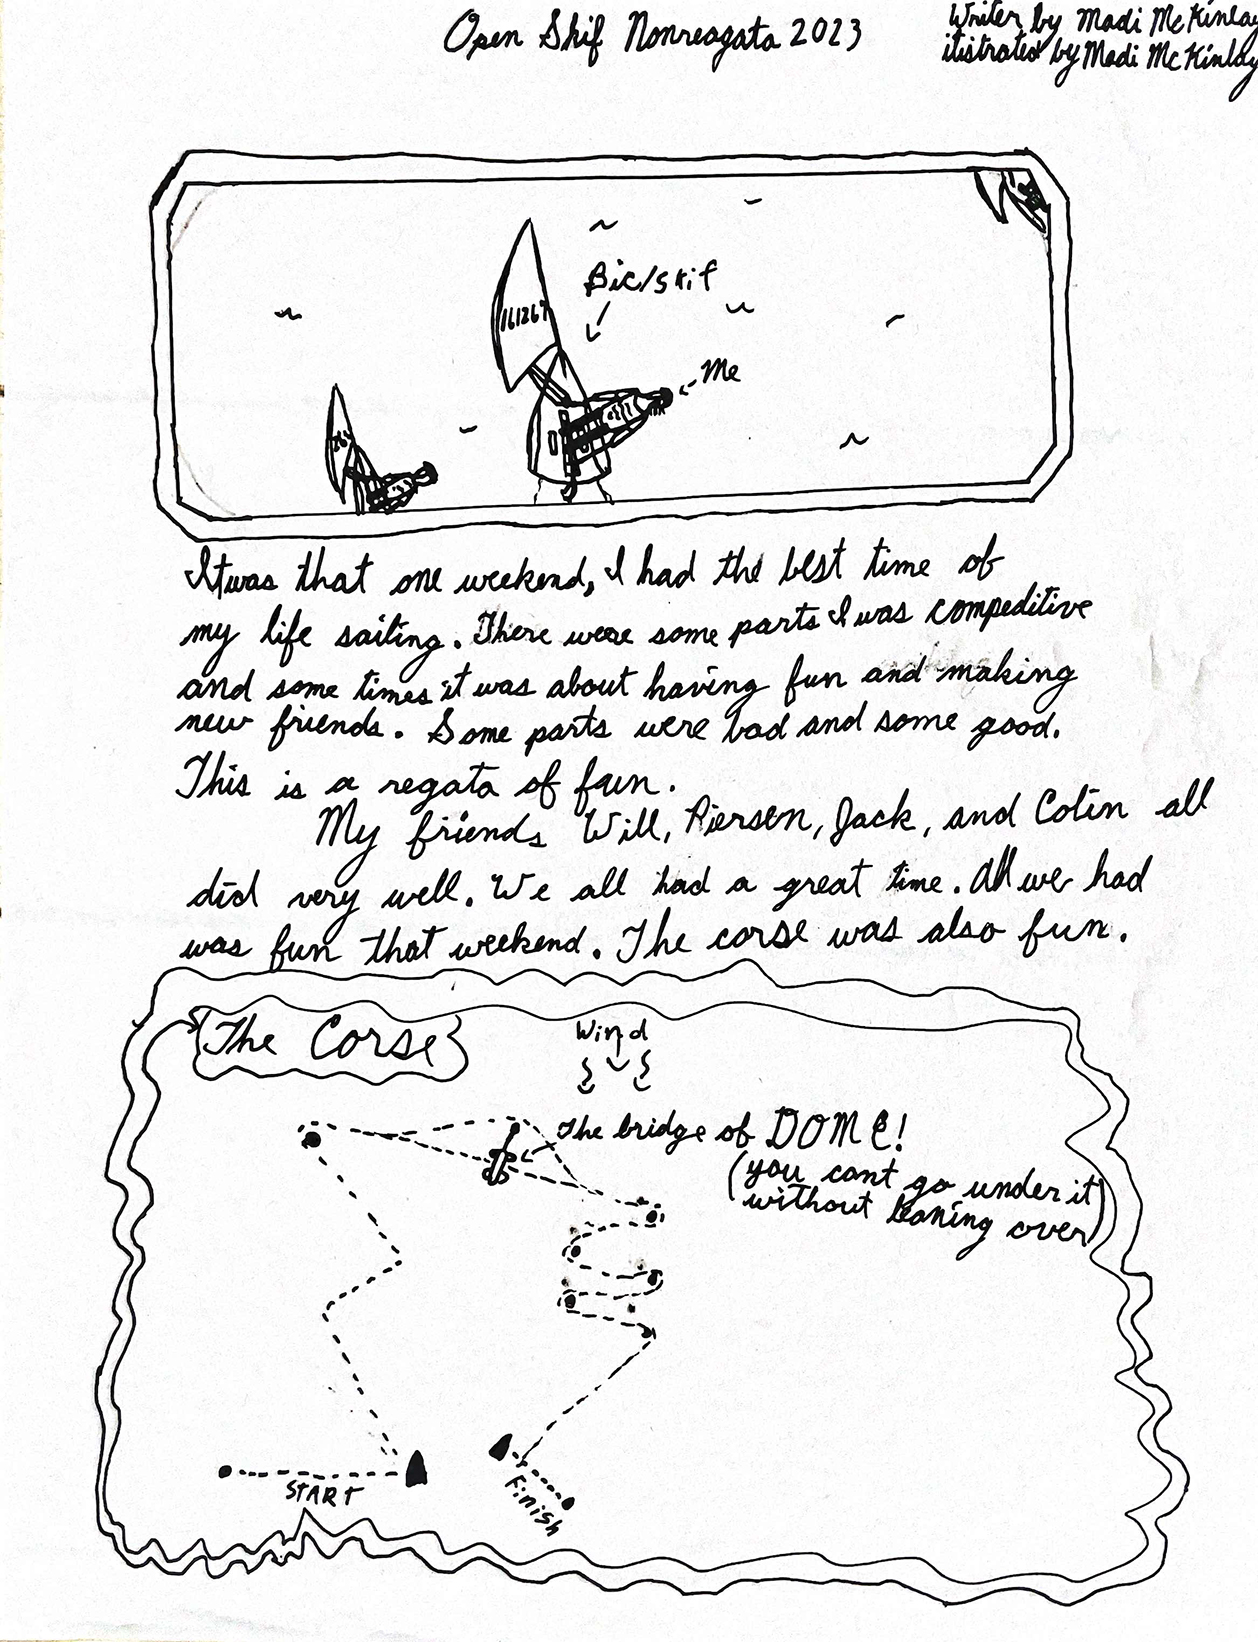 Open Skif Nonreagata 2023
Writer by Madi McKinlay
itistrated by Madi McKinlay
161267
Bic/skif
Me
It was that one weekend, I had the best time of
my life sailing. There were some parts I was compeditive
and some times it was about having fun and making
new friends. Some parts were bad and some good.
This is a regata of fun.
My friends Will, Piersen, Jack, and Colin all
did very well. We all had a great time. All we had
was fun that weekend. The corse was also fun.
The Corse
Wind
The bridge of DOME!
(you cant go under it
without leaning over)
START
Finish